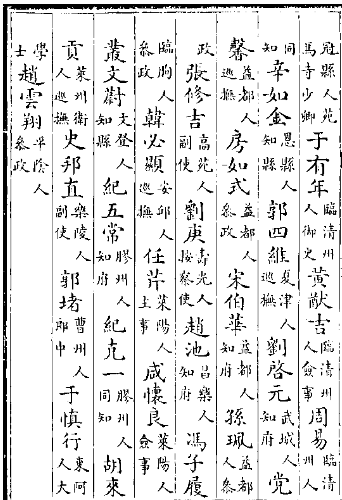 冠縣人苑馬寺少卿于有年臨清州人御史黃猷吉臨清州人僉事周易臨清州人
同知辛如金恩縣人知縣郭四維夏津人巡撫劉啓元武城人知府党
馨益都人巡撫房如式益都人參政宋伯華益都人知府孫珮益都人參
政張修吉高苑人副使劉庚壽光人按察使趙池昌樂人知府馮子履
臨朐人參政韓必顯安邱人巡撫任芹萊陽人主事咸懷良萊陽人僉事
叢文蔚文登人知縣紀五常膠州人知府紀克一膠州人同知胡來
貢萊州衛人巡撫史邦直樂陵人副使郭堵曹州人郎中于慎行東阿人大
學士趙雲翔平陰人參政